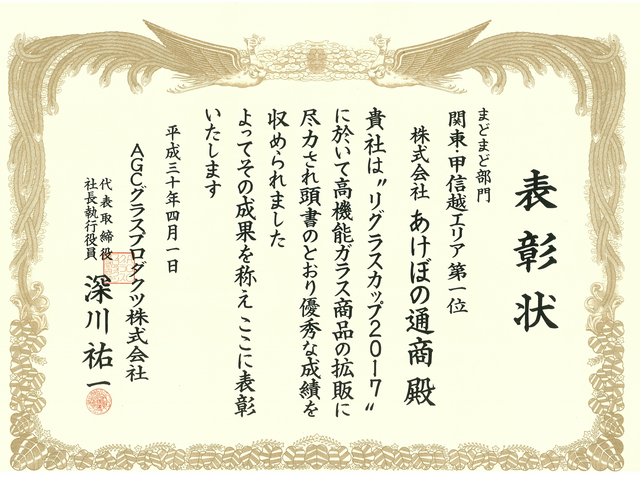 表彰状
まどまど部門
関東・甲信越エリア第一位
株式会社 あけぼの通商 殿
貴社は〝リグラスカップ2017〟
に於いて高機能ガラス商品の拡販に
尽力され頭書のとおり優秀な成績を
収められました
よってその成果を称え ここに表彰
いたします
平成三十年四月一日
AGCグラスプロダクツ株式会社
代表取締役
社長執行役員
深川祐一